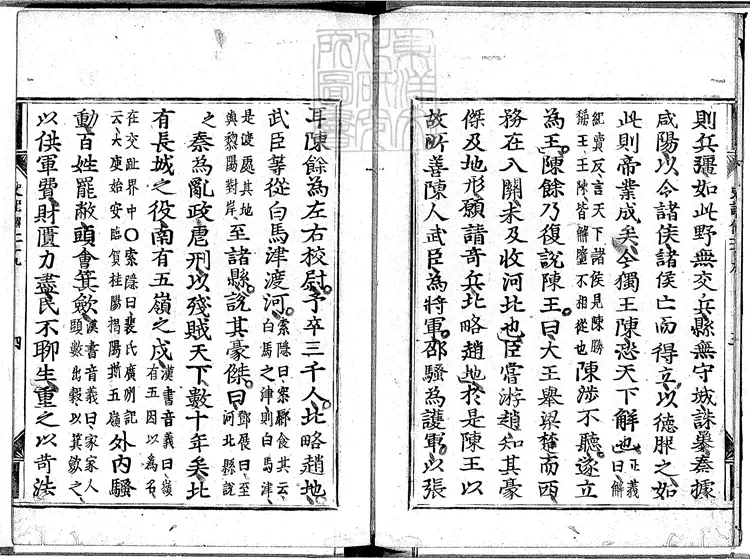 則兵彊如此野無交兵縣無守城誅暴秦據
咸陽以令諸侯諸侯亡而得立以德服之如
此則帝業成矣今獨王陳恐天下解也正義曰解
紀賣反言天下諸侯見陳勝稱王王陳皆解墮不相從也陳涉不聽遂立
為王陳餘乃復說陳王曰大王舉梁楚而西
務在入關未及收河北也臣嘗游趙知其豪
傑及地形願請奇兵北略趙地於是陳王以
故所善陳人武臣為將軍邵騷為護軍以張
耳陳餘為左右校尉予卒三千人北略趙地
武臣等從白馬津渡河索隱曰案酈食其云白馬之津則白馬津
是渡處其地與黎陽對岸至諸縣說其豪傑曰鄧展曰至河北縣說
之秦為亂政虐刑以殘賊天下數十年矣北
有長城之役南有五嶺之戍漢書音義曰嶺有五因以為名
在交趾界中○索隱曰裴氏廣州記云大庾始安臨賀桂陽揭陽斯五嶺外內騷
動百姓罷敝頭會箕斂漢書音義曰家家人頭數出穀以箕斂之
以供軍費財匱力盡民不聊生重之以苛法
四
東洋文化研究所圖書